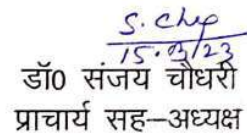 15.03/23
डॉ0 संजय चौधरी
प्राचार्य सह–अध्यक्ष